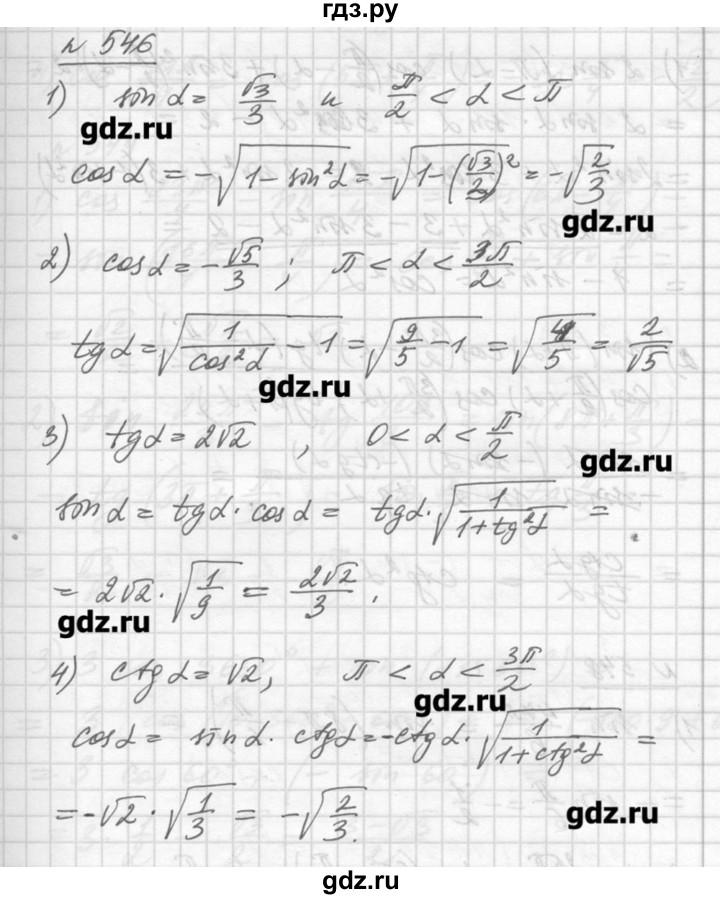 гдз.ру
№ 546
1) sin α = √3/3 и π/2 < α < π
gdz.ru
cos α = -√(1 - sin²α) = -√(1 - (√3/3)²) = -√(2/3)
gdz.ru
2) cos α = -√5/3 ; π < α < 3π/2
tg α = √(1/cos²α - 1) = √(9/5 - 1) = √(4/5) = 2/√5
gdz.ru
3) tg α = 2√2 , 0 < α < π/2
gdz.ru
sin α = tg α · cos α = tg α · √(1/(1 + tg²α)) =
= 2√2 · √(1/9) = 2√2/3 .
gdz.ru
4) ctg α = √2, π < α < 3π/2
gdz.ru
cos α = sin α · ctg α = -ctg α · √(1/(1 + ctg²α)) =
= -√2 · √(1/3) = -√(2/3).
gdz.ru
gdz.ru